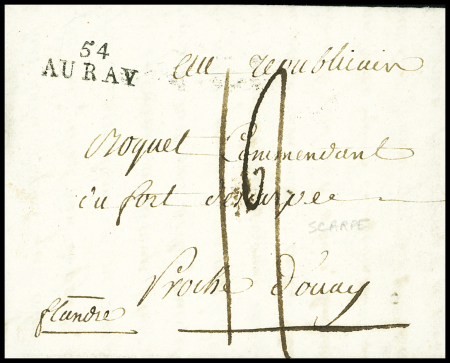 54
AURAY
au republicain
Croquet Commendant
du fort de scarpe
SCARPE
Proche Douay
flandre